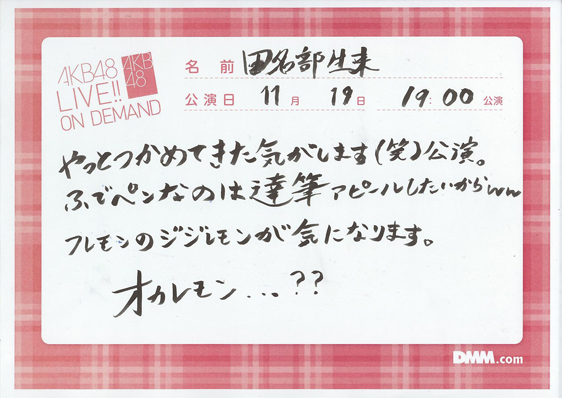 AKB48
LIVE!!
ON DEMAND
AKB
48
名前 田名部生来
公演日 11月 19日 19:00 公演
やっとつかめてきた気がします(笑)公演。
ふでペンなのは達筆アピールしたいからww
フレモンのジジレモンが気になります。
オカレモン...??
DMM.com